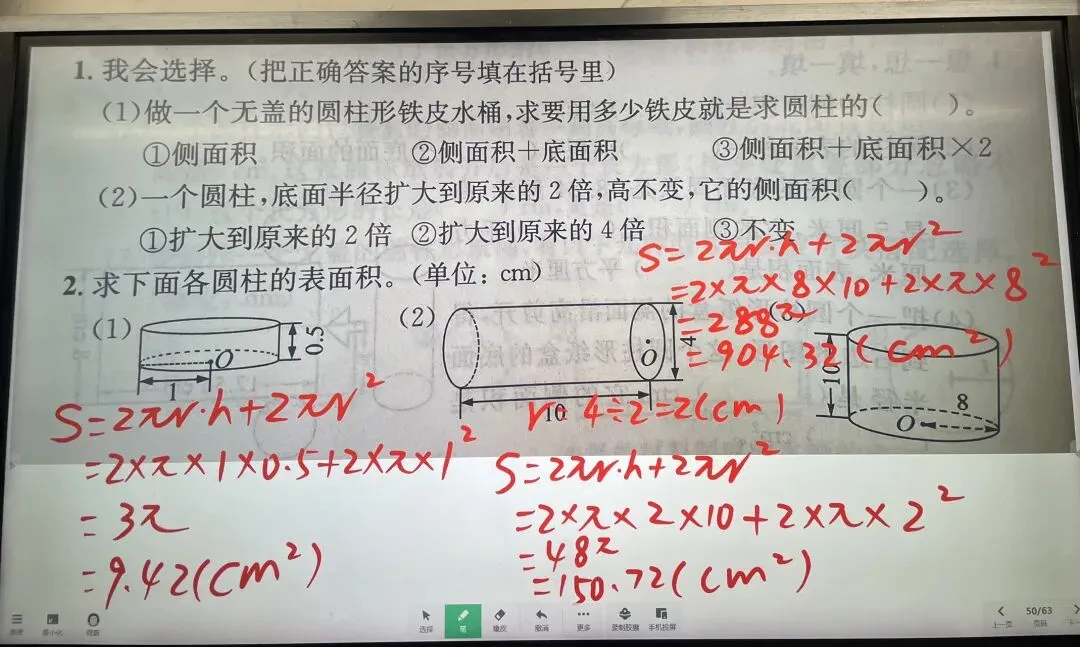 1. 我会选择。(把正确答案的序号填在括号里)
(1)做一个无盖的圆柱形铁皮水桶,求要用多少铁皮就是求圆柱的(  )。
①侧面积 ②侧面积+底面积 ③侧面积+底面积×2
(2)一个圆柱,底面半径扩大到原来的2倍,高不变,它的侧面积(  )。
①扩大到原来的2倍 ②扩大到原来的4倍 ③不变
2. 求下面各圆柱的表面积。(单位:cm)
(1) 0.5 O 1
(2) 4 O 10
10 8 O
S=2πr·h+2πr²
=2×π×1×0.5+2×π×1²
=3π
=9.42(cm²)
r= 4÷2=2(cm)
S=2πr·h+2πr²
=2×π×2×10+2×π×2²
=48π
=150.72(cm²)
S=2πr·h+2πr²
=2×π×8×10+2×π×8²
=288π
=904.32(cm²)
选择 笔 橡皮 撤消 更多 录制胶囊 手机投屏
最小化
50/63
上一页 页码